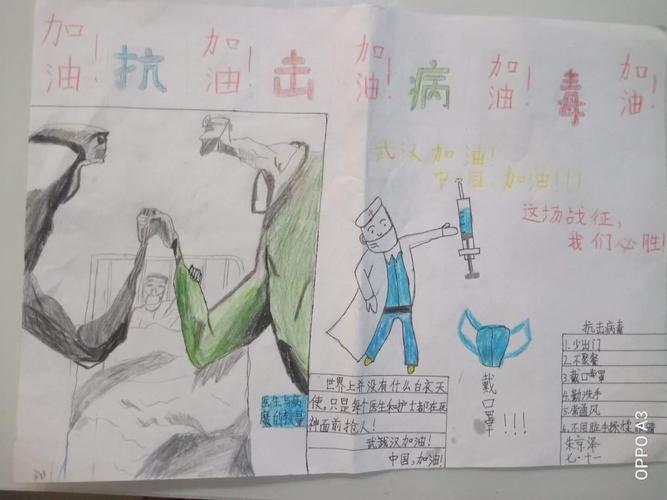 加油! 抗 加油! 击 加油! 病 加油! 毒 加油!
武汉加油!
中国,加油!!!
这场战征,
我们必胜!
医生与病
魔的较量
世界上并没有什么白衣天
使,只是每个医生和护士都在死
神面前抢人!
武汉加油!
中国,加油!
戴口罩!!!
抗击病毒
1.少出门
2.不聚餐
3.戴口罩
4.勤洗手
5.常通风
6.不用脏手
朱京泽
七·十一
OPPO A3